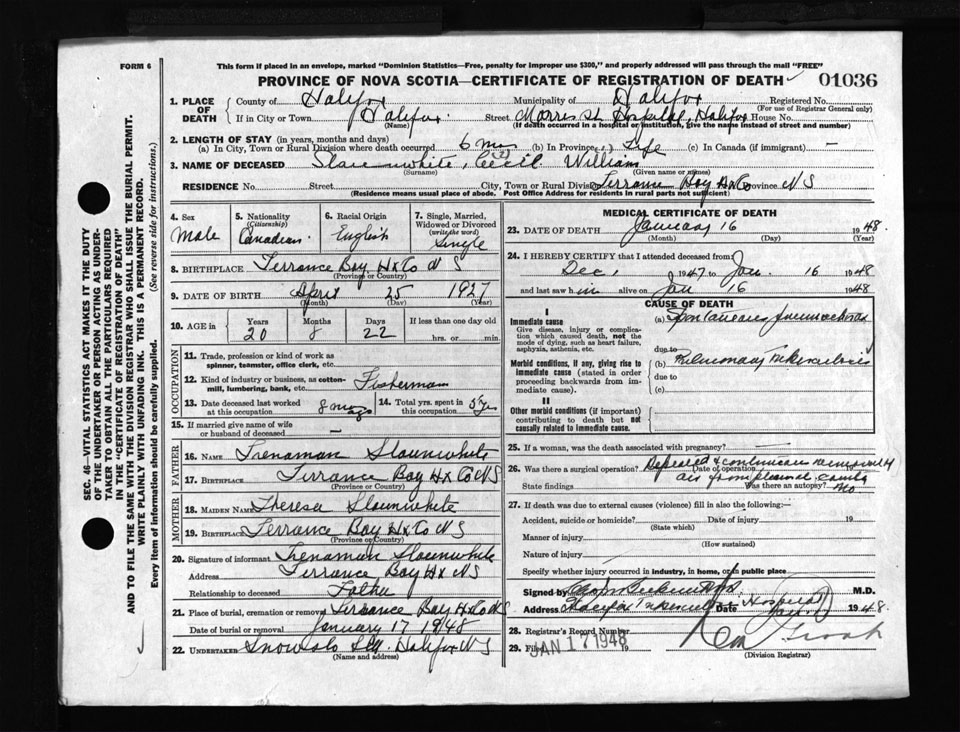 FORM 6
This form if placed in an envelope, marked "Dominion Statistics—Free, penalty for improper use $300," and properly addressed will pass through the mail "FREE"
PROVINCE OF NOVA SCOTIA—CERTIFICATE OF REGISTRATION OF DEATH 01036
1. PLACE OF DEATH
County of Halifax Municipality of Halifax Registered No.
(For use of Registrar General only)
If in City or Town Halifax. Street Morris St. Hospital, Halifax House No.
(Name) (If death occurred in a hospital or institution, give the name instead of street and number)
2. LENGTH OF STAY (in years, months and days)
(a) In City, Town or Rural Division where death occurred 6 mos (b) In Province Life (c) In Canada (if immigrant) —
3. NAME OF DECEASED Slaunwhite, Cecil William
(Surname) (Given name or names)
RESIDENCE No. Street City, Town or Rural Division Terrance Bay Hx Co Province N S
(Residence means usual place of abode. Post Office Address for residents in rural parts not sufficient)
4. Sex
Male
5. Nationality
(Citizenship)
Canadian
6. Racial Origin
English
7. Single, Married, Widowed or Divorced
(write the word)
Single
8. BIRTHPLACE Terrance Bay Hx Co N S
(Province or Country)
9. DATE OF BIRTH April 25 1927
(Month) (Day) (Year)
10. AGE in Years Months Days If less than one day old
20 8 22 hrs. or min.
OCCUPATION
11. Trade, profession or kind of work as
spinner, teamster, office clerk, etc.
12. Kind of industry or business, as cotton-
mill, lumbering, bank, etc. Fisherman
13. Date deceased last worked
at this occupation 8 mos
14. Total yrs. spent in
this occupation 5 yrs
15. If married give name of wife
or husband of deceased —
FATHER
16. NAME Trenaman Slaunwhite
17. BIRTHPLACE Terrance Bay Hx Co N S
(Province or Country)
MOTHER
18. MAIDEN NAME Theresa Slaunwhite
19. BIRTHPLACE Terrance Bay Hx Co N S
(Province or Country)
20. Signature of informant Trenaman Slaunwhite
Address Terrance Bay Hx N S
Relationship to deceased Father
21. Place of burial, cremation or removal Terrance Bay Hx Co N S
Date of burial or removal January 17 1948
22. UNDERTAKER Snow & Co Ltd. Halifax N S
(Name and address)
MEDICAL CERTIFICATE OF DEATH
23. DATE OF DEATH January 16 1948
(Month) (Day) (Year)
24. I HEREBY CERTIFY that I attended deceased from
Dec 1 1947 to Jan. 16 1948
and last saw him alive on Jan 16 1948
CAUSE OF DEATH
I
Immediate cause
Give disease, injury or complica-
tion which caused death, not the
mode of dying, such as heart failure,
asphyxia, asthenia, etc.
(a) Spontaneous pneumothorax
due to
Morbid conditions, if any, giving rise to
immediate cause (stated in order
proceeding backwards from im-
mediate cause).
(b) Pulmonary Tuberculosis
due to
(c)
II
Other morbid conditions (if important)
contributing to death but not
causally related to immediate cause.
25. If a woman, was the death associated with pregnancy? —
26. Was there a surgical operation? Repeated & continuous removal of
Date of operation
air from pleural cavity
State findings Was there an autopsy? No
27. If death was due to external causes (violence) fill in also the following:—
Accident, suicide or homicide? Date of injury 19
(State which)
Manner of injury
(How sustained)
Nature of injury
Specify whether injury occurred in industry, in home, or in public place
Signed by M.D.
Address Halifax Tuberculosis Hospital Date 1948
28. Registrar's Record Number
29. Filed JAN 17 1948 19
(Division Registrar)
SEC. 46—VITAL STATISTICS ACT MAKES IT THE DUTY
OF THE UNDERTAKER OR PERSON ACTING AS UNDER-
TAKER TO OBTAIN ALL THE PARTICULARS REQUIRED
IN THE "CERTIFICATE OF REGISTRATION OF DEATH"
AND TO FILE THE SAME WITH THE DIVISION REGISTRAR WHO SHALL ISSUE THE BURIAL PERMIT.
WRITE PLAINLY WITH UNFADING INK. THIS IS A PERMANENT RECORD.
Every item of information should be carefully supplied. (See reverse side for instructions.)